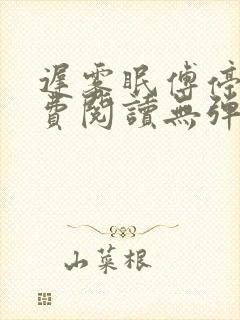 遲霧眠傅停
費閱讀無彈
山菜根